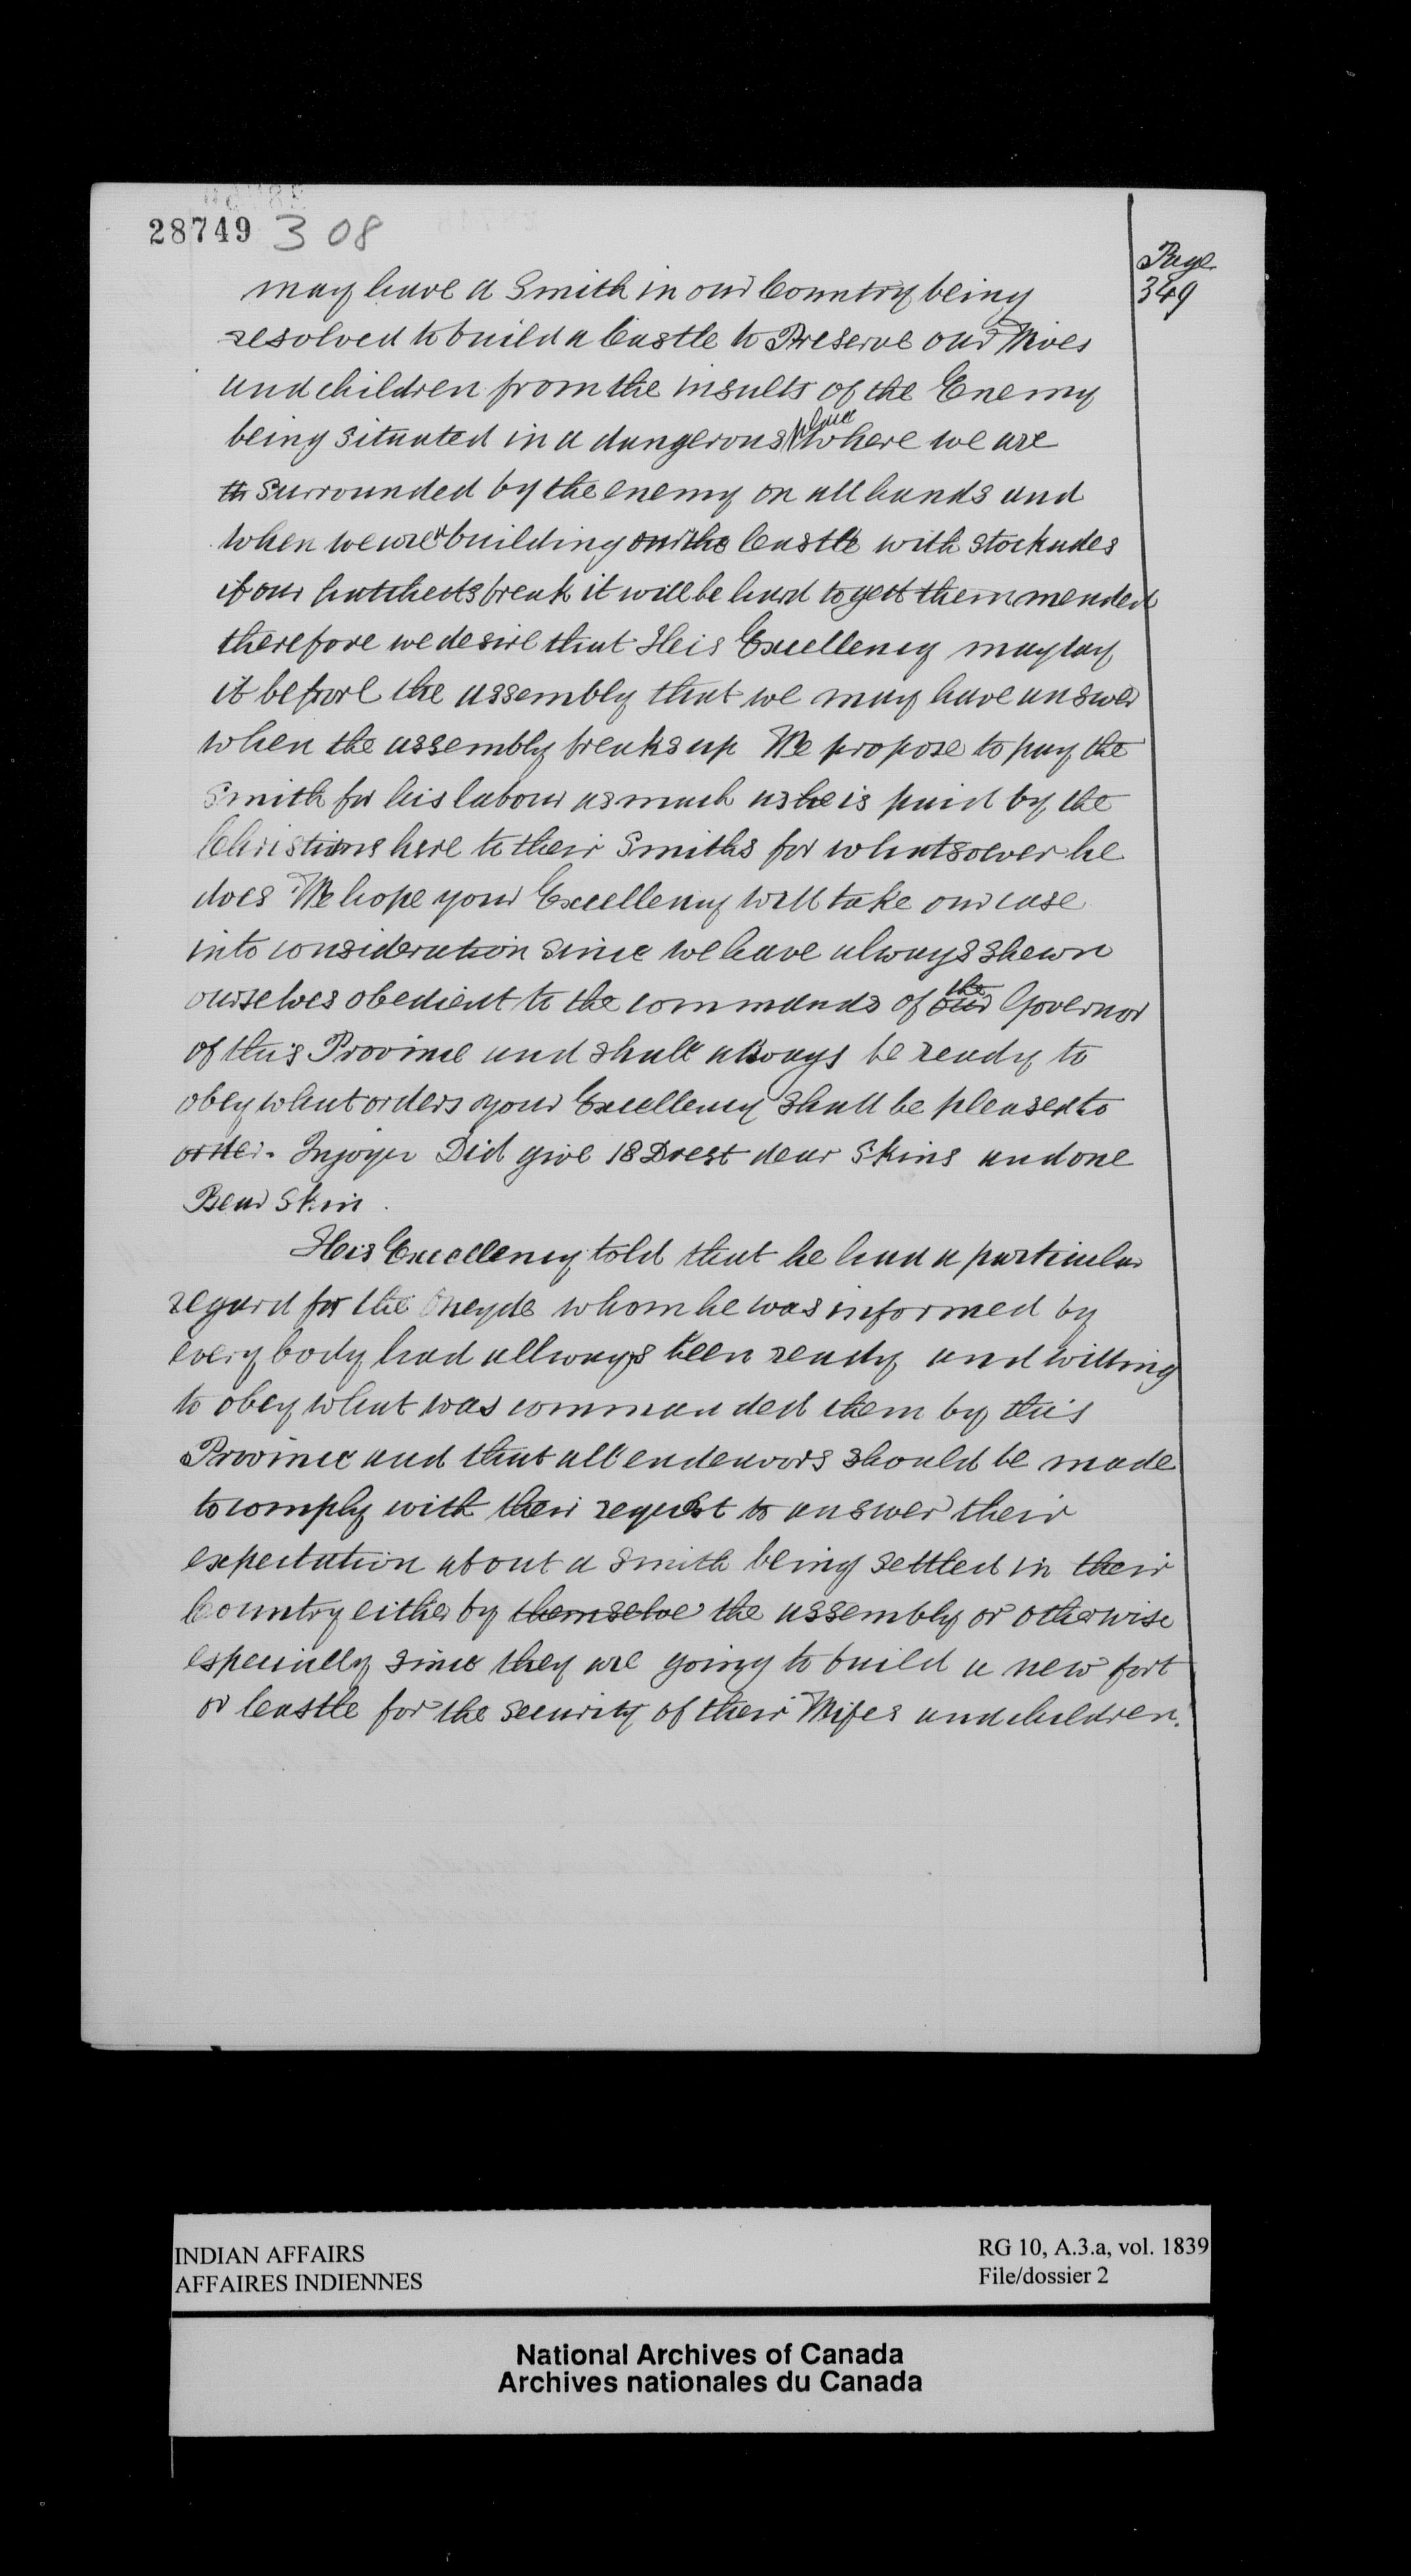 28749 308
Page
349
may have a Smith in our Country being
resolved to build a Castle to Preserve our Wives
and children from the insults of the Enemy
being situated in a dangerous place where we are
th surrounded by the enemy on all hands and
when we are building our the Castle with stockades
if our hatchets break it will be hard to gett them mended
therefore we desire that Heis Excellency may lay
it before the assembly that we may have answer
when the assembly breaks up We propose to pay the
Smith for his labour as much as he is paid by the
Christians here to their Smiths for whatsoever he
does We hope your Excellency will take our case
into consideration since we have always shewn
ourselves obedient to the commands of our the Governor
of this Province and shall always be ready to
obey what orders your Excellency shall be pleased to
order. Did give 18 Drest dear Skins and one
Bear Skin.
Heis Excellency told that he had a particular
regard for the Oneyde whom he was informed by
every body had allways been ready and willing
to obey what was commanded them by this
Province and that all endeavors should be made
to comply with their request to answer their
expectation about a smith being settled in their
Country either by themselve the assembly or otherwise
especially since they are going to build a new fort
or Castle for the security of their Wifes and children.
INDIAN AFFAIRS
AFFAIRES INDIENNES
RG 10, A.3.a, vol. 1839
File/dossier 2
National Archives of Canada
Archives nationales du Canada